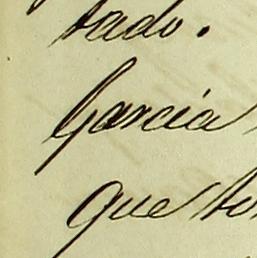 tado.
Garcia
que